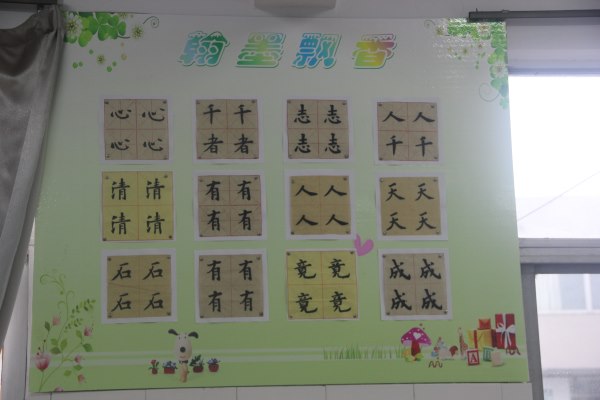 翰墨飘香
心心 千千 志志 人人
心心 者者 志志 千千
清清 有有 人人 天天
清清 有有 人人 天天
石石 有有 竟竟 成成
石石 有有 竟竟 成成
A